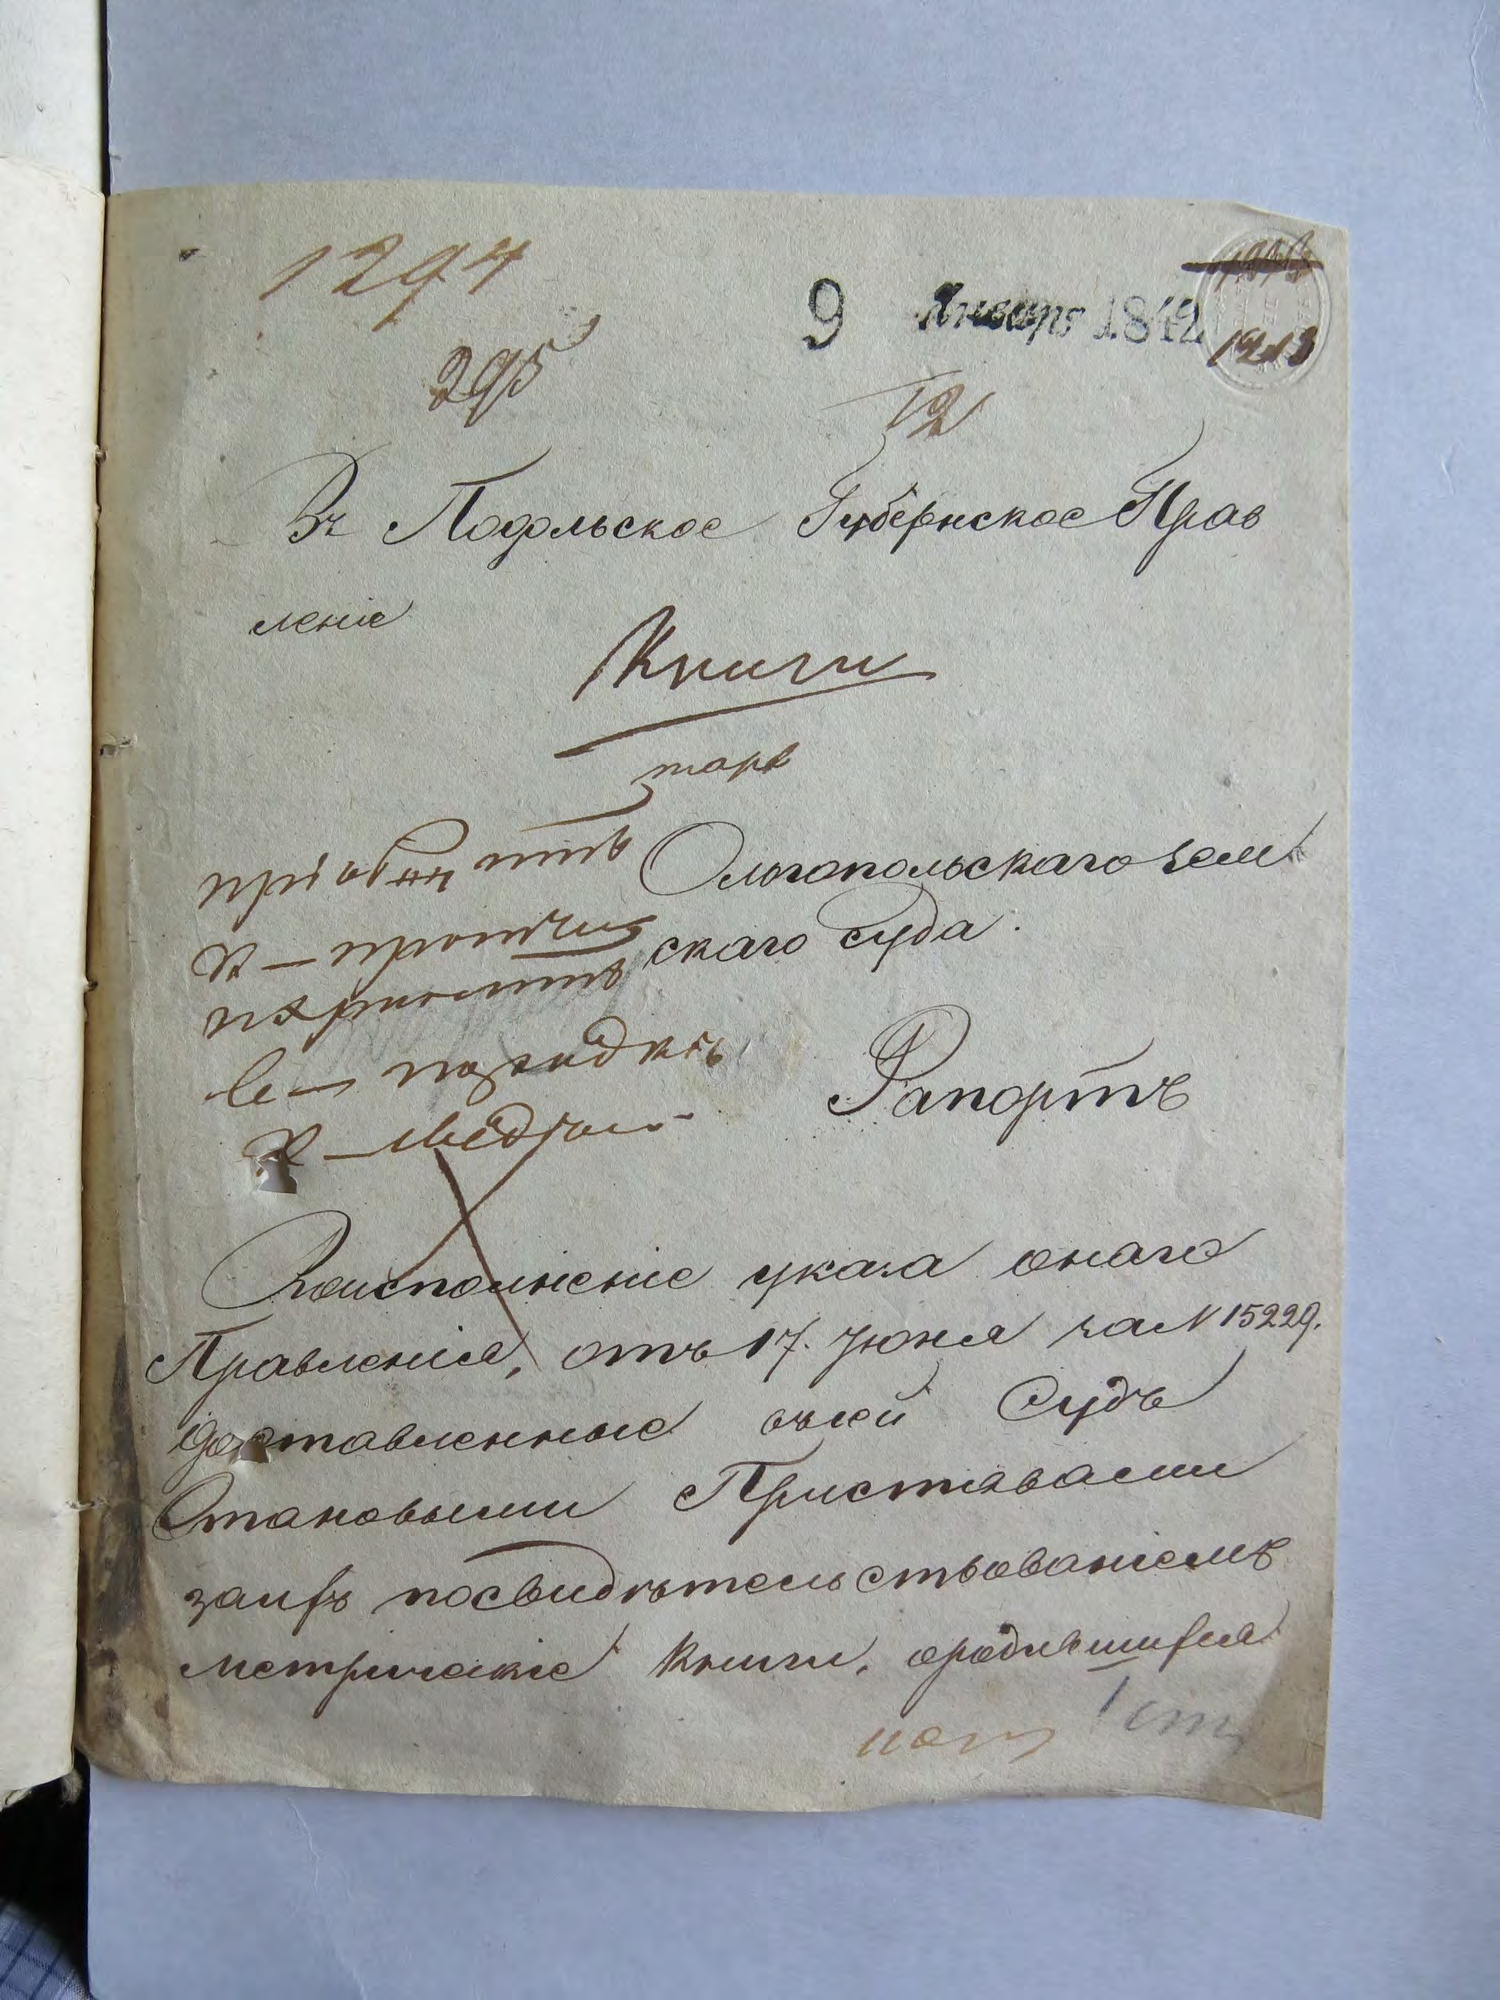 1294
9 Январь 1842
1213
295
12
Въ Подольское Губернское Прав
леніе
Книги
Ольгопольскаго зем
скаго суда.
Рапортъ
Воисполненіе указа онаго
Правленія, отъ 17. Іюня за N 15229.
доставленные въсей Судъ
Становыми Приставами
заихъ посвидѣтельствованіемъ
метрическіе книги, ородившихся